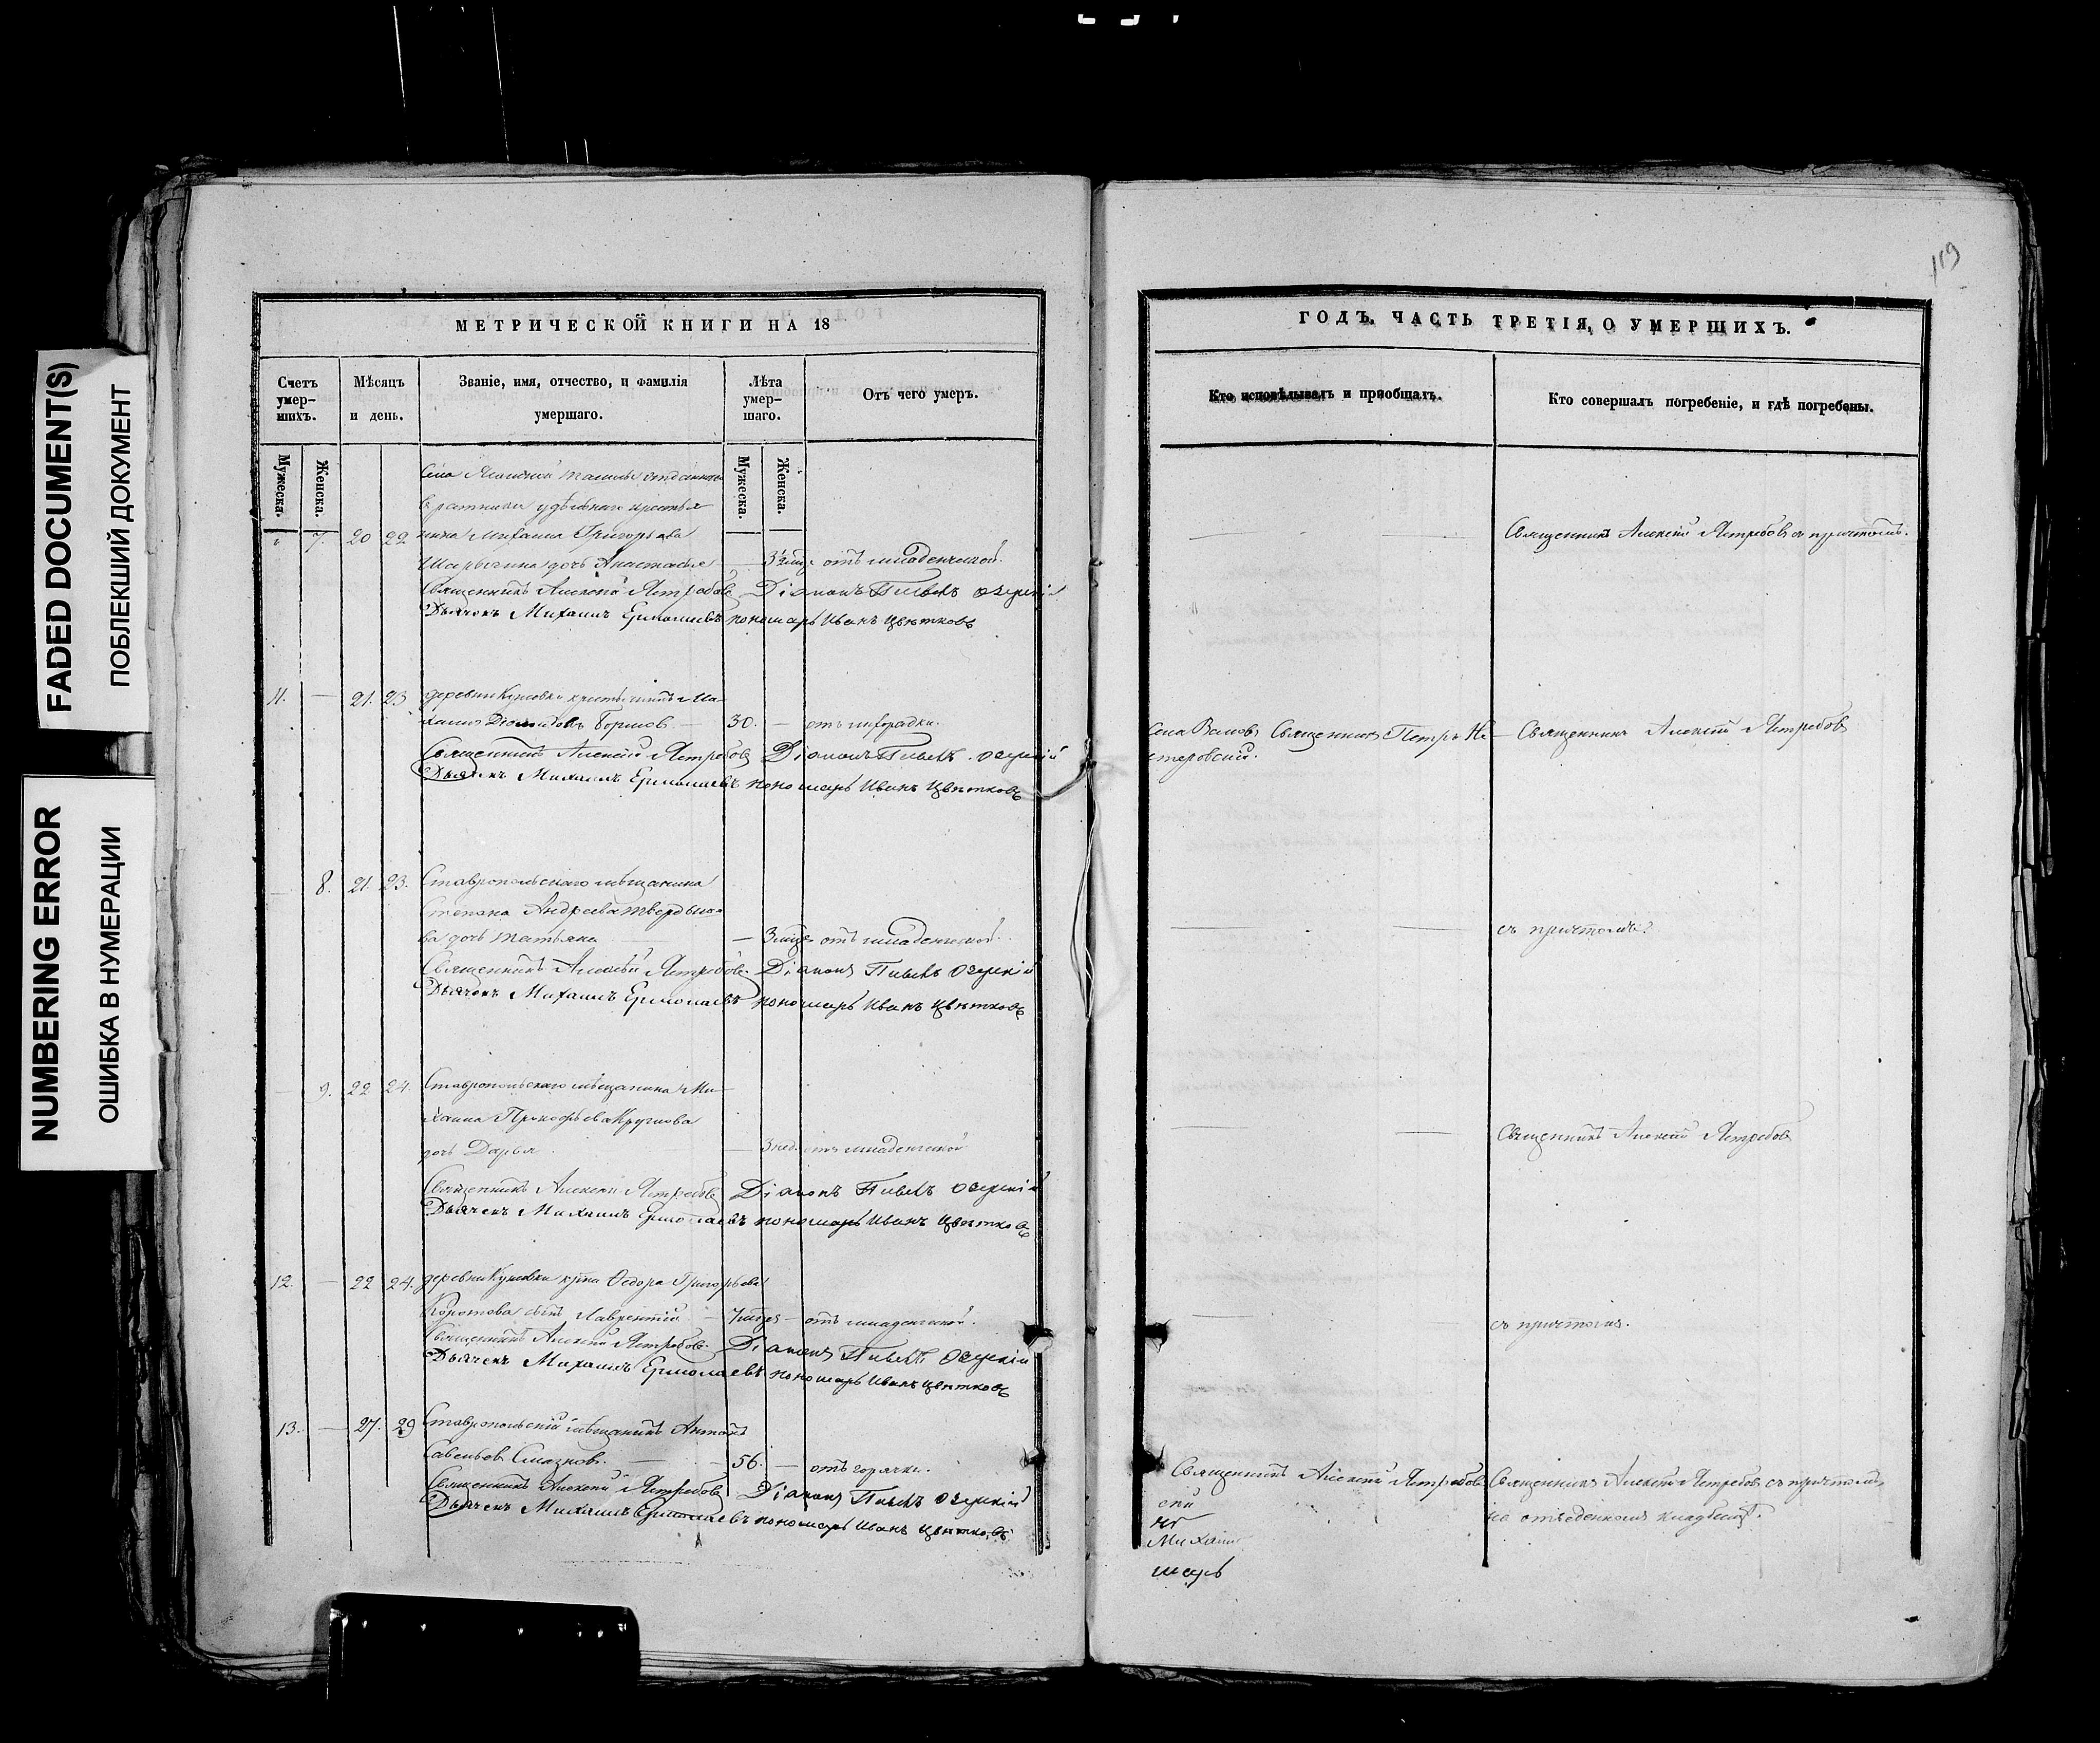 FADED DOCUMENT(S)
ПОБЛЕКШИЙ ДОКУМЕНТ
NUMBERING ERROR
ОШИБКА В НУМЕРАЦИИ
МЕТРИЧЕСКОЙ КНИГИ НА 18
Счетъ умер-шихъ.
Мѣсяцъ и день.
Званіе, имя, отчество, и фамилія умершаго.
Лѣта умер-шаго.
Отъ чего умеръ.
Мужеска.
Женска.
Мужеска.
Женска.
Села
удѣльнаго крестья
7. 20 22 нина Михаила Григорьева
дочь Анастасья — 3½ мцр отъ младенческой.
Священникъ Алексѣй Ястребовъ Діаконъ Павелъ Озерскій
Дьячекъ Михаилъ Ермолаевъ пономарь Иванъ Цвѣтковъ
11. — 21. 23 деревни Куновки крестьянинъ Ми
хаилъ Діомидовъ — 30. — отъ лихорадки.
Священникъ Алексѣй Ястребовъ Діаконъ Павелъ Озерскій
Дьячекъ Михаилъ Ермолаевъ пономарь Иванъ Цвѣтковъ
8. 21. 23. Ставропольскаго мѣщанина
Степана Андреева Твердыш
ва дочь Татьяна — 3 мцр отъ младенческой.
Священникъ Алексѣй Ястребовъ Діаконъ Павелъ Озерскій
Дьячекъ Михаилъ Ермолаевъ пономарь Иванъ Цвѣтковъ
9. 22 24. Ставропольскаго мѣщанина Ми
хаила Прокофьева Круглова
дочь Дарья — 3 нед. отъ младенческой
Священникъ Алексѣй Ястребовъ Діаконъ Павелъ Озерскій
Дьячекъ Михаилъ Ермолаевъ пономарь Иванъ Цвѣтковъ
12. — 22 24. деревни Куновки Федора Григорьева
Коротова сынъ Лаврентій — 7 мцр — отъ младенческой.
Священникъ Алексѣй Ястребовъ Діаконъ Павелъ Озерскій
Дьячекъ Михаилъ Ермолаевъ пономарь Иванъ Цвѣтковъ
13. — 27. 29 Ставропольскій мѣщанинъ Антонъ
Савельевъ — 56. — отъ горячки.
Священникъ Алексѣй Ястребовъ Діаконъ Павелъ Озерскій
Дьячекъ Михаилъ Ермолаевъ пономарь Иванъ Цвѣтковъ
119
ГОДЪ, ЧАСТЬ ТРЕТІЯ, О УМЕРШИХЪ.
Кто исповѣдывалъ и пріобщалъ.
Кто совершалъ погребеніе, и гдѣ погребены.
Священникъ Алексѣй Ястребовъ съ причтомъ.
Села Священникъ Петръ Не — Священникъ Алексѣй Ястребовъ
стеровскій.
съ причтомъ.
Священникъ Алексѣй Ястребовъ
съ причтомъ.
Священникъ Алексѣй Ястребовъ Священникъ Алексѣй Ястребовъ съ причтомъ
на отведенномъ кладбищѣ.
Михаилъ
марь